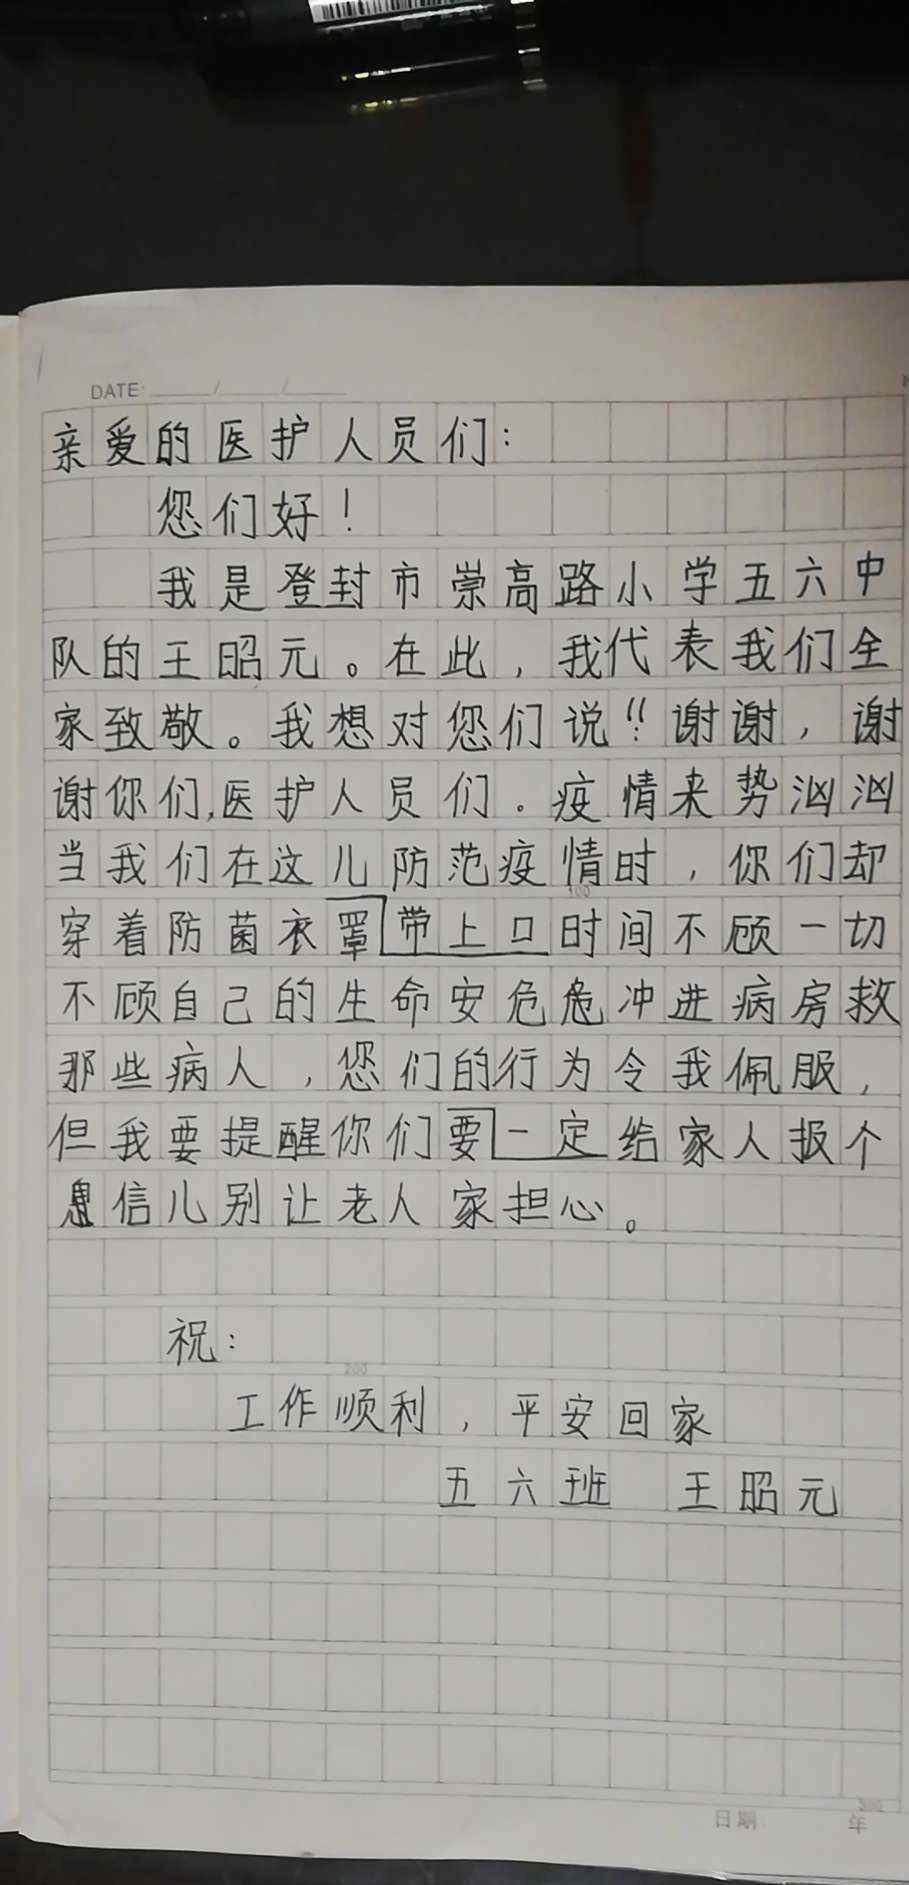 DATE: / /
亲爱的医护人员们：
您们好！
我是登封市崇高路小学五六中
队的王昭元。在此，我代表我们全
家致敬。我想对您们说!!谢谢，谢
谢你们,医护人员们.疫情来势汹汹
当我们在这儿防范疫情时，你们却
100
穿着防菌衣罩带上口时间不顾一切
不顾自己的生命安危危冲进病房救
那些病人，您们的行为令我佩服，
但我要提醒你们要一定给家人报个
息信儿别让老人家担心。
祝：
200
工作顺利，平安回家
五六班 王昭元
300
日期 年